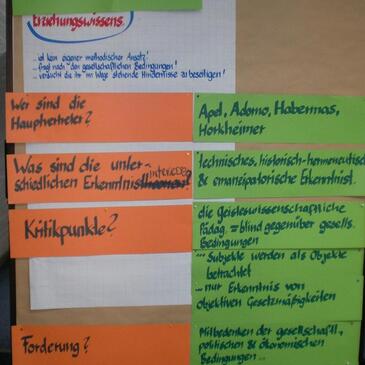 Erziehungswissens.
...ist kein eigener methodischer Ansatz!
...fragt nach den gesellschaftlichen Bedingungen!
...versucht die ihr im Wege stehende Hindernisse zu beseitigen!
Wer sind die
Hauptvertreter?
Apel, Adorno, Habermas,
Horkheimer
Was sind die unter-
schiedlichen Erkenntnisinteresse?
technisches, historisch-hermeneutisch
& emanzipatorische Erkenntnist.
Kritikpunkte?
die Geisteswissenschaftliche
Pädag. = blind gegenüber gesells.
Bedingungen
... Subjekte werden als Objekte
betrachtet
... nur Erkenntnis von
objektiven Gesetzmäßigkeiten
Forderung?
Mitbedenken der gesellschaftl.,
politischen & ökonomischen
Bedingungen...